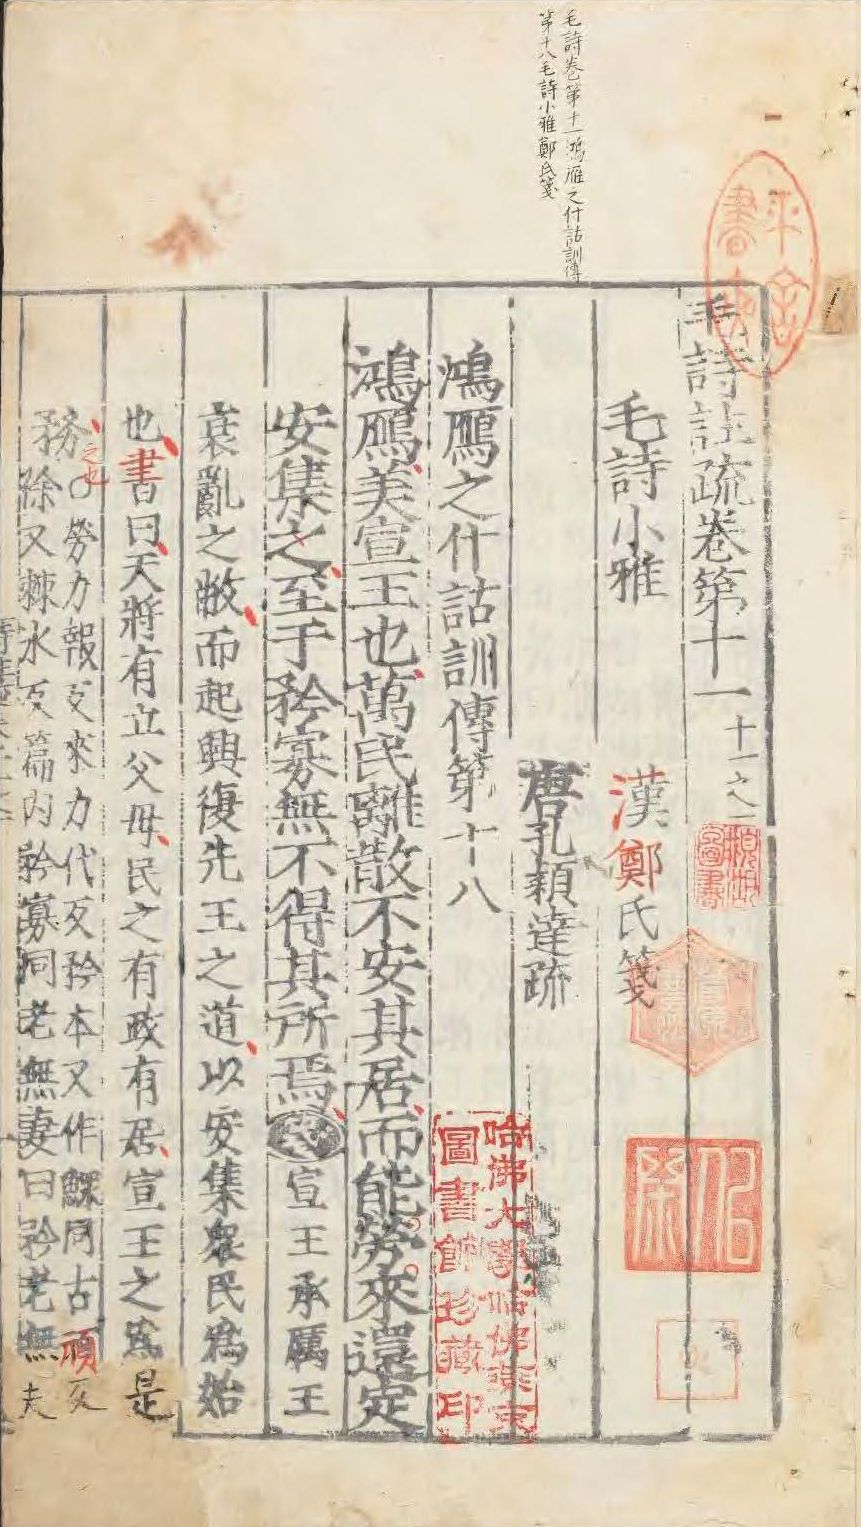 毛詩卷第十一鴻雁之什詁訓傳
第十八毛詩小雅鄭氏箋
毛詩註疏卷第十一 十一之一
毛詩小雅 漢鄭氏箋
唐孔穎達疏
鴻鴈之什詁訓傳第十八
鴻鴈美宣王也萬民離散不安其居而能勞來還定
安集之至于矜寡無不得其所焉 宣王承厲王
衰亂之敝而起興復先王之道以安集衆民爲始
也書曰天將有立父母民之有政有居宣王之爲是
務之也〇勞力報反來力代反矜本又作鰥同古頑反
徐又棘冰反篇內矜寡同老無妻曰矜老無夫
哈佛大學哈佛燕京
圖書館珍藏印